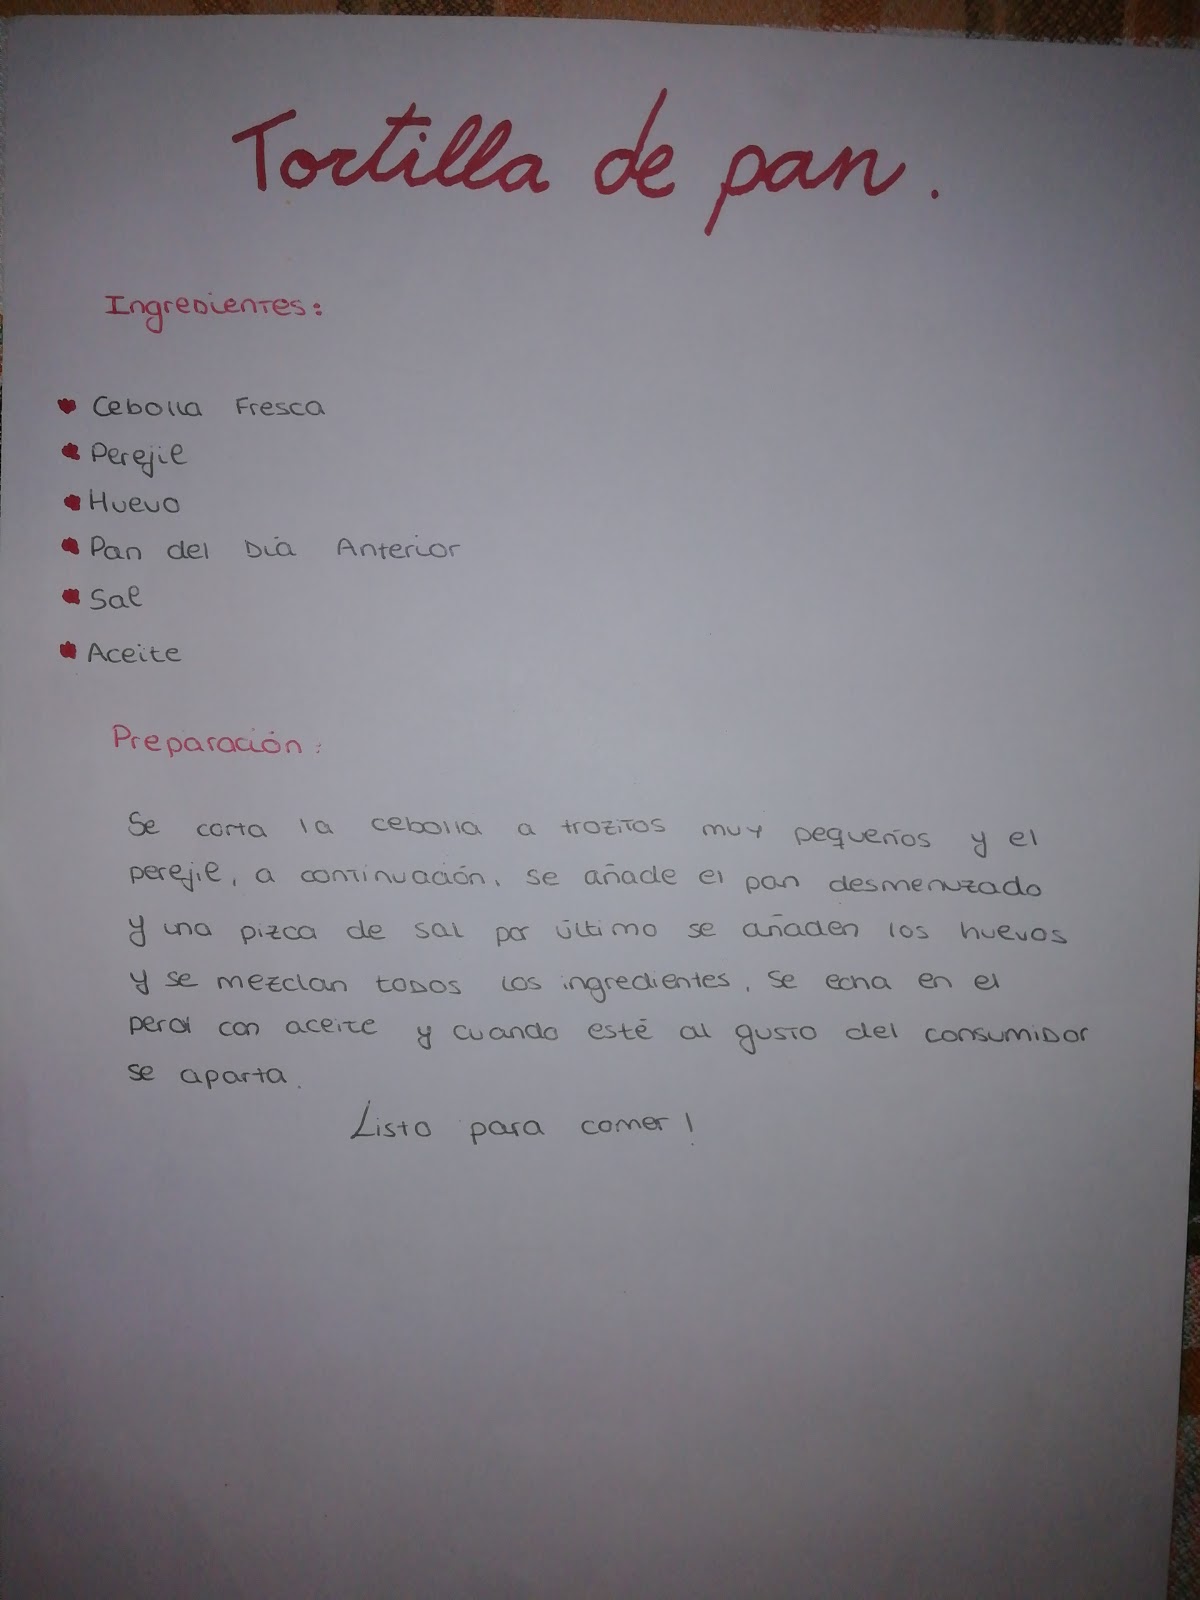 Tortilla de pan.
Ingredientes:
Cebolla Fresca
Perejil
Huevo
Pan del Día Anterior
Sal
Aceite
Preparación:
Se corta la cebolla a trozitos muy pequeños y el
perejil, a continuación, se añade el pan desmenuzado
y una pizca de sal por último se añaden los huevos
y se mezclan todos los ingredientes, se echa en el
perol con aceite y cuando esté al gusto del consumidor
se aparta.
Listo para comer!